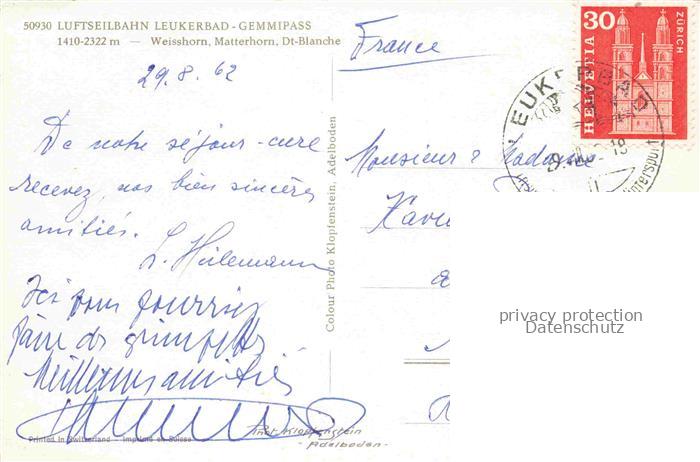 50930 LUFTSEILBAHN LEUKERBAD - GEMMIPASS
1410-2322 m — Weisshorn, Matterhorn, Dt-Blanche
29.8.62
De notre séjour-cure
recevez nos bien sincères
amitiés.
Ici vous pourriez
faire des grimpettes
Meilleures amitiés
Printed in Switzerland - Imprimé en Suisse
Colour Photo Klopfenstein, Adelboden
Phot. Klopfenstein
- Adelboden -
France
30
HELVETIA
ZÜRICH
LEUKERBAD
Monsieur & Madame
privacy protection
Datenschutz